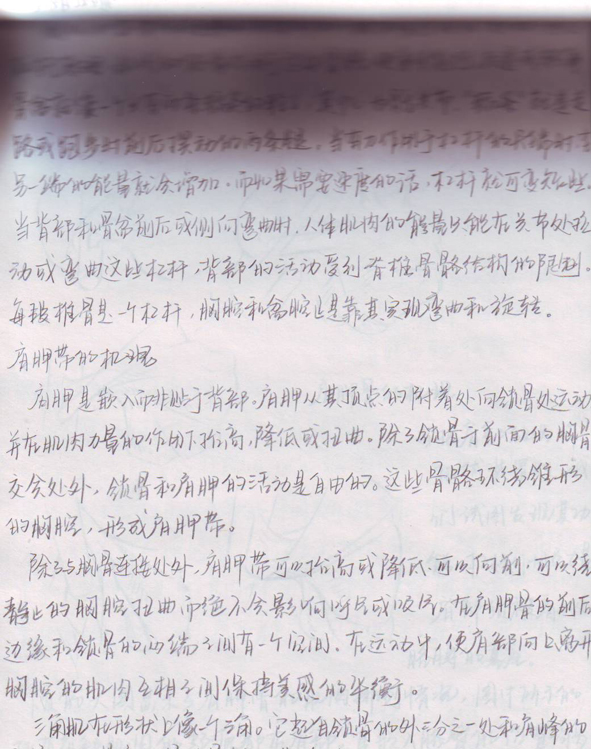 路或跑步时前后摆动的两条腿。当有力作用于杠杆的末端时,
另一端的能量就会增加,而如果需要速度的话,杠杆就可弯短些。
当背部和骨盆前后或侧向弯曲时,人体肌肉的能量只能在关节处拉
动或弯曲这些杠杆,背部的活动受到脊椎骨骼结构的限制。
每段椎骨是一个杠杆,胸腔和盆腔也是靠其实现弯曲和旋转。
肩胛带的机理
肩胛是嵌入而非贴于背部。肩胛从其顶点的附着处向锁骨处运动
并在肌肉力量的作用下抬高,降低或扭曲。除了锁骨于前面的胸骨
交会处外,锁骨和肩胛的活动是自由的。这些骨骼环绕锥形
的胸腔,形成肩胛带。
除了与胸骨连接处外,肩胛带可以抬高或降低,可以向前,可以绕
静止的胸腔扭曲而绝不会影响呼气或吸气。在肩胛骨的前后
边缘和锁骨的两端之间有一个空间,在运动中,使肩部向上离开
胸腔的肌肉互相之间保持美感的平衡。
三角肌在形状上像一个三角。它起自锁骨的外三分之一处和肩峰的